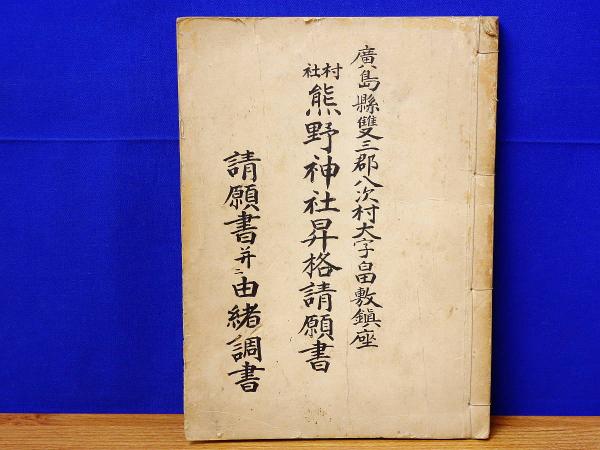 廣島縣雙三郡八次村大字畠敷鎮座
村社熊野神社昇格請願書
請願書并ニ由緒調書